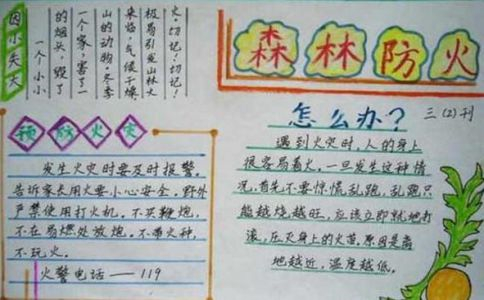 因小失大
一个小小
的烟头，毁了
一个家，害了一
山的动物。冬季
来临，气候干燥，
极易引发山林大
火。切记！切记！
森林防火
预防火灾
发生火灾时要及时报警。
告诉家长用火要小心安全。野外
严禁使用打火机。不买鞭炮，
不在易燃处放炮。不带火种，
不玩火。
火警电话——119
怎么办？
三（2）刊
遇到火灾时，人的身上
很容易着火，一旦发生这种情
况，首先不要惊慌乱跑，乱跑只
能越烧越旺，应该立即就地打
滚，压灭身上的火苗。原因是离
地越近，温度越低。